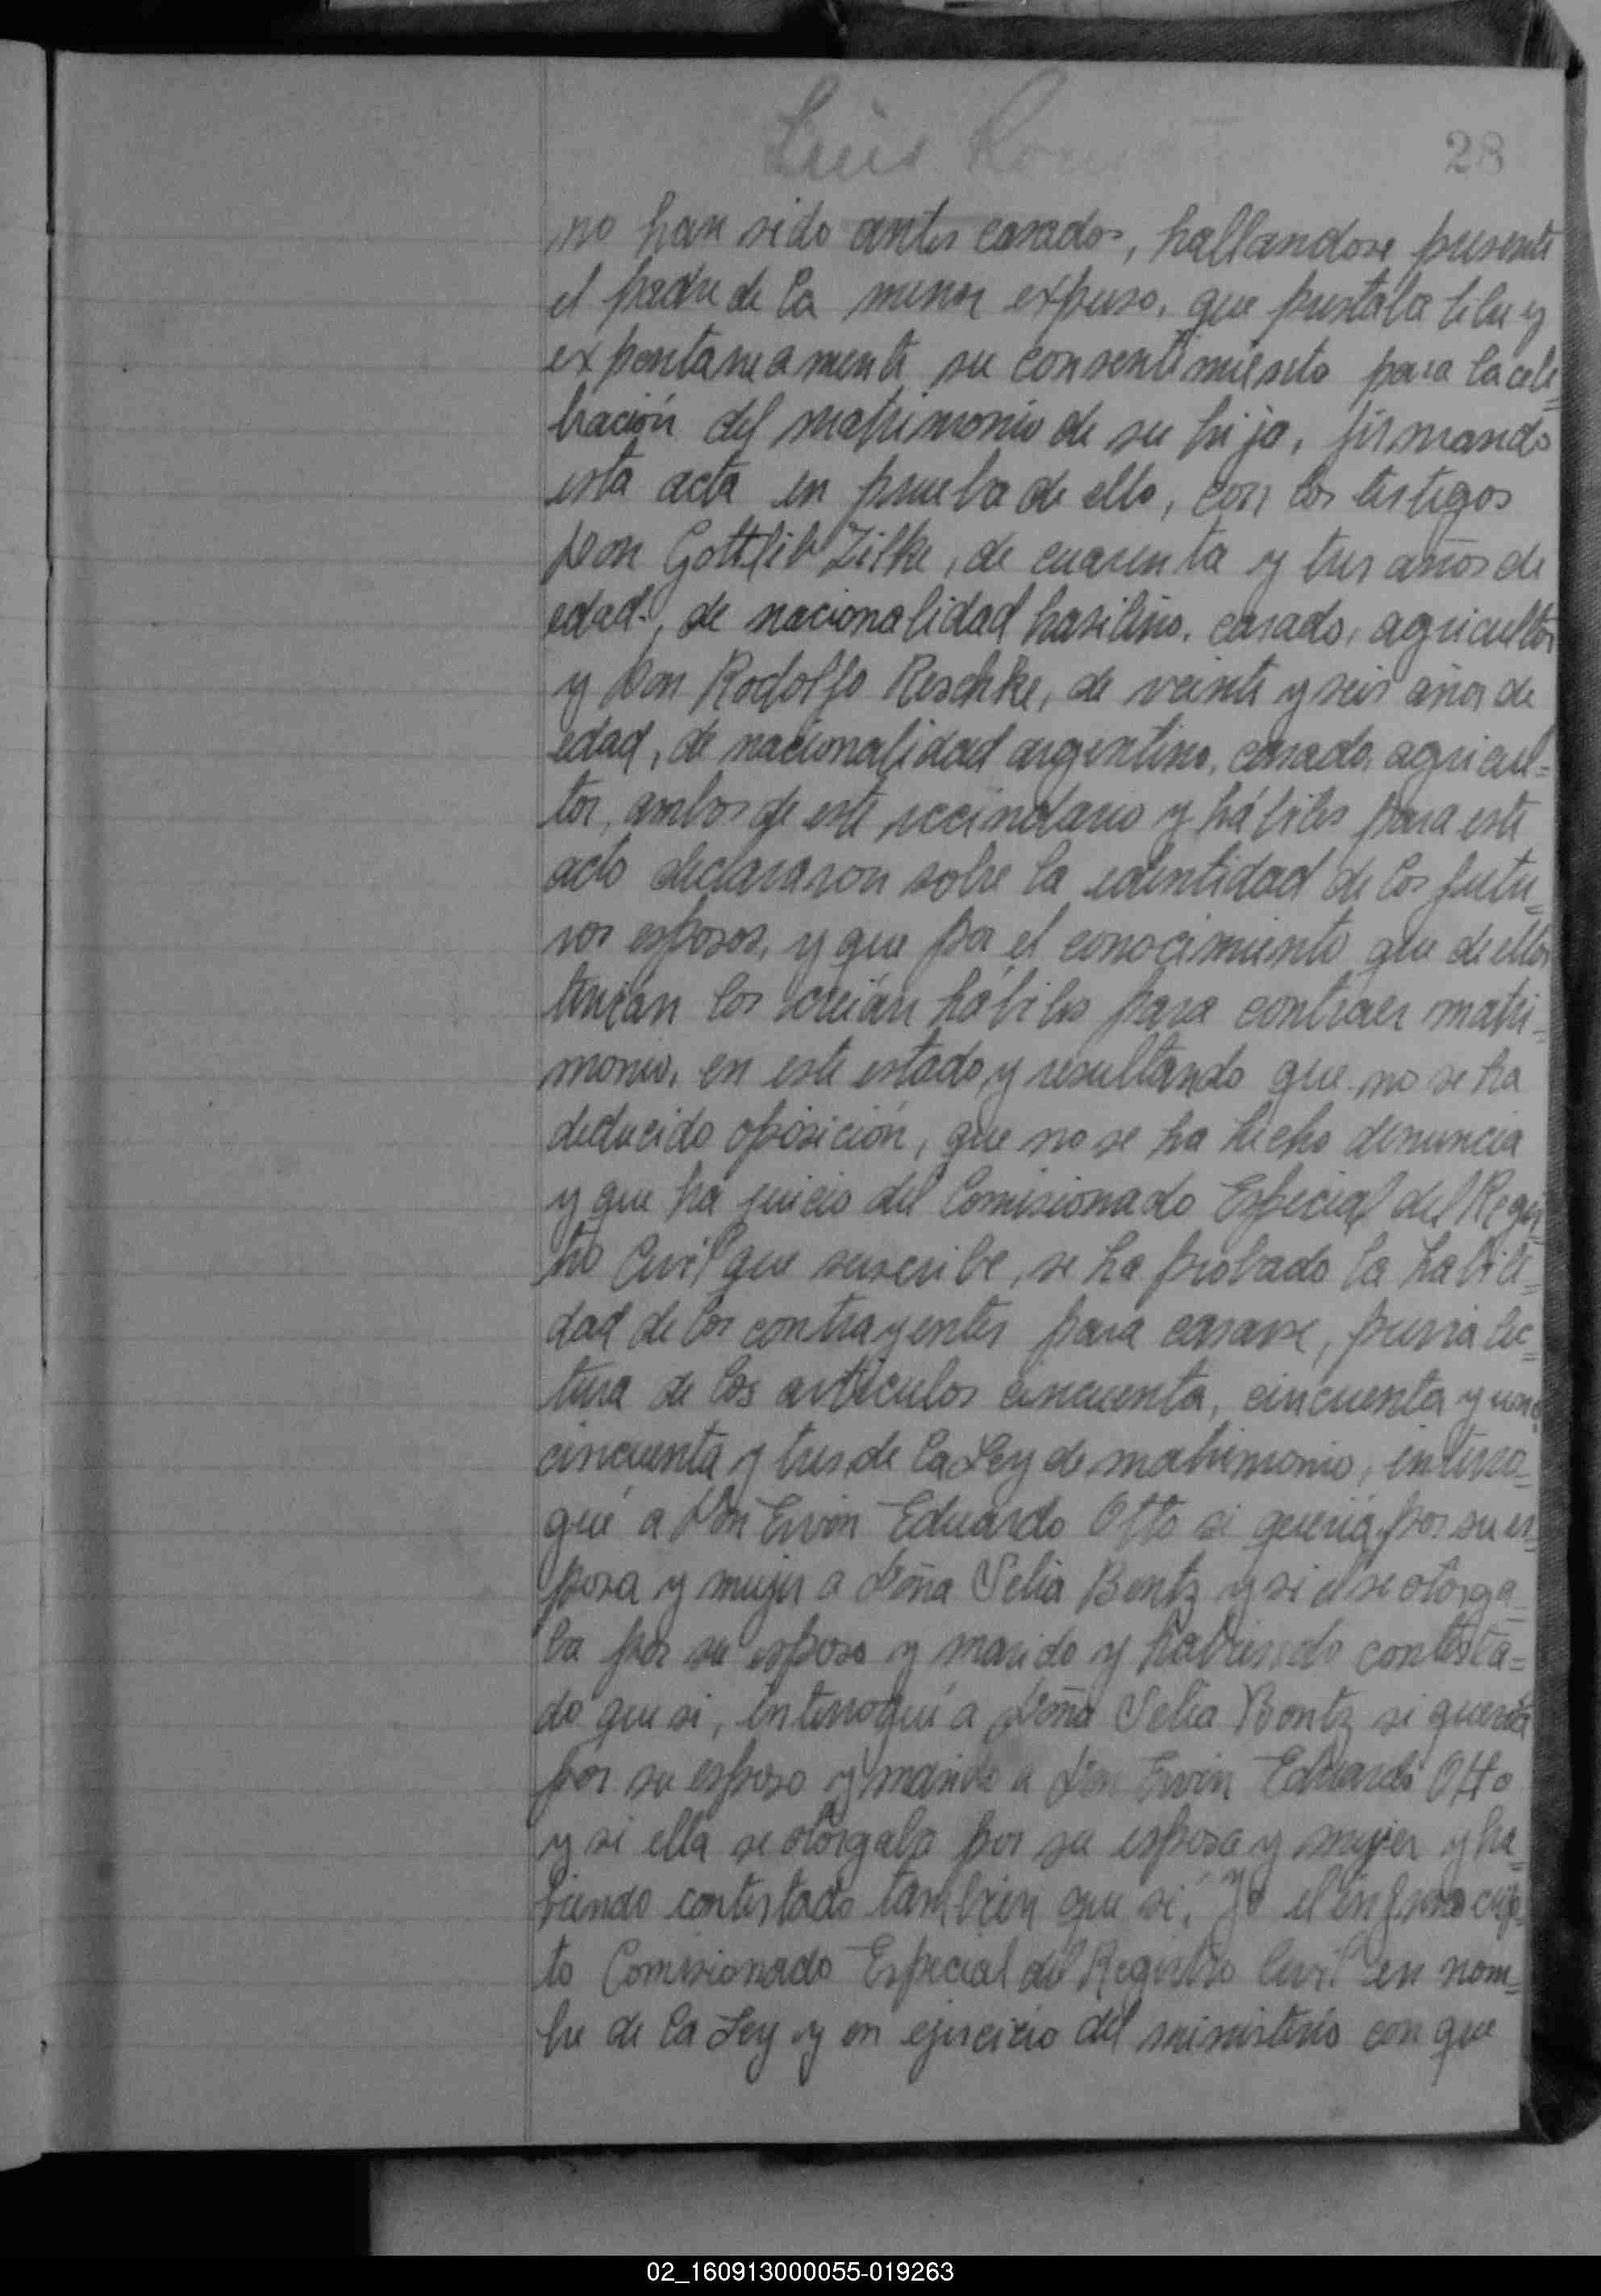 Luis
28
no han sido antes casados, hallandose presente
el padre de la menor expuso, que prestaba libre y
expontaneamente su consentimiento para la cele=
bración del matrimonio de su hija, firmando
esta acta en prueba de ello, con los testigos
Don Gottlib Zilke, de cuarenta y tres años de
edad, de nacionalidad brasilino, casado, agricultor
y Don Rodolfo Reschke, de veinte y seis años de
edad, de nacionalidad argentino, casado, agricul=
tor, ambos de este vecindario y hábiles para este
acto declararon sobre la identidad de los futu=
ros esposos, y que por el conocimiento que de ellos
tenían los creían hábiles para contraer matri=
monio, en este estado y resultando que no se ha
deducido oposición, que no se ha hecho denuncia
y que ha juicio del Comisionado Especial del Regis=
tro Civil que suscribe, se ha probado la habili=
dad de los contrayentes para casarse, previa lec=
tura de los artículos cincuenta, cincuenta y uno
cincuenta y tres de la Ley de matrimonio, interro=
gué a Don Ervin Eduardo Otto si quería por su es=
posa y mujer a Doña Selia Bontz y si el se otorga=
ba por su esposo y marido y habiendo contesta=
do que si, interrogué a Doña Selia Bontz si quería
por su esposo y marido a Don Ervin Eduardo Otto
y si ella se otorgaba por su esposa y mujer y ha=
biendo contestado tambien que si, Yo el infrascrip=
to Comisionado Especial del Registro Civil en nom=
bre de la Ley y en ejercicio del ministerio con que
02_160913000055-019263